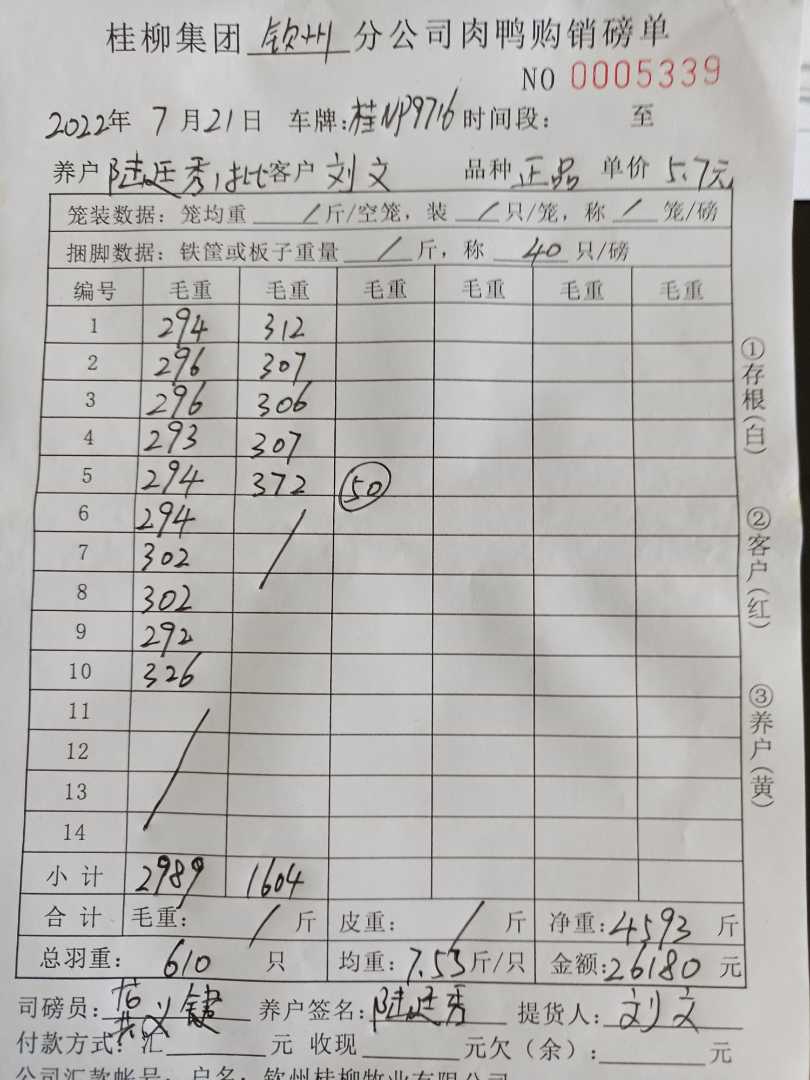 桂柳集团 钦州 分公司肉鸭购销磅单
NO 0005339
2022年 7月21日 车牌:桂NP9716 时间段: 至
养户 陆廷秀1批 客户 刘文 品种 正品 单价 5.7元
笼装数据: 笼均重 / 斤/空笼, 装 / 只/笼, 称 / 笼/磅
捆脚数据: 铁筐或板子重量 / 斤, 称 40 只/磅
编号 毛重 毛重 毛重 毛重 毛重 毛重
1 294 312
2 296 307
3 296 306
4 293 307
5 294 372 50
6 294 /
7 302
8 302
9 292
10 326
11 /
12
13
14
小计 2989 1604
合计 毛重: / 斤 皮重: / 斤 净重:4593 斤
总羽重: 610 只 均重:7.53斤/只 金额:26180 元
司磅员: 养户签名:陆廷秀 提货人:刘文
付款方式: 汇 元 收现 元欠(余): 元
公司汇款帐号: 户名: 钦州桂柳牧业有限公司
①存根(白)
②客户(红)
③养户(黄)